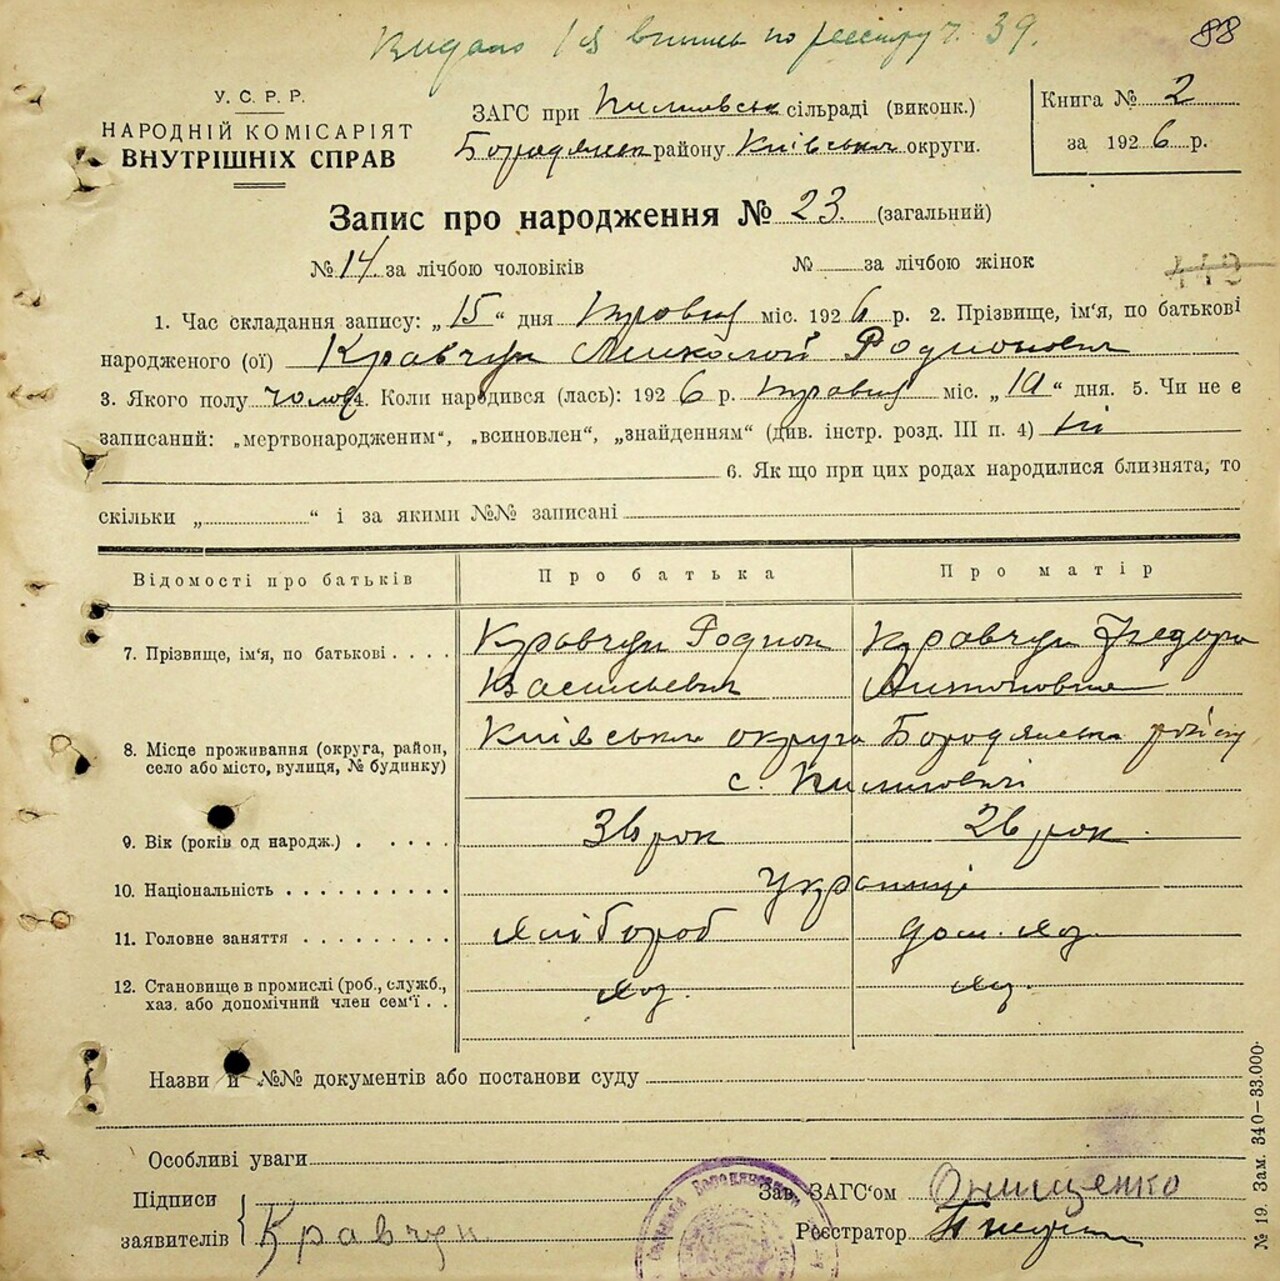 Видано 1 ія впись по реєстру ч. 39.
88
У. С. Р. Р.
НАРОДНІЙ КОМІСАРІЯТ
ВНУТРІШНІХ СПРАВ
ЗАГС при сільраді (виконк.)
Бородянськ району Київська округи.
Книга № 2
за 1926 р.
Запис про народження № 23. (загальний)
№ 14. за лічбою чоловіків № за лічбою жінок
944
1. Час складання запису: „15“ дня травня міс. 1926 р. 2. Прізвище, ім'я, по батькові
народженого (ої) Кравчук Миколай Родионович
3. Якого полу чолов 4. Коли народився (лась): 1926 р. травня міс. „10“ дня. 5. Чи не є
записаний: „мертвонародженим“, „всиновлен“, „знайденням“ (див. інстр. розд. III п. 4) ні
6. Як що при цих родах народилися близнята, то
скільки „ “ і за якими №№ записані
Відомості про батьків Про батька Про матір
7. Прізвище, ім'я, по батькові . . . . Кравчук Родион Кравчук Федора
Васильевич Антоновна
8. Місце проживання (округа, район,
село або місто, вулиця, № будинку)
Київська округа Бородянська району
с.
9. Вік (років од народж.) . . . . . 36 рок 26 рок.
10. Національність . . . . . . . . . Українці
11. Головне заняття . . . . . . . . . хлібороб дом. хоз.
12. Становище в промислі (роб., служб.,
хаз. або допомічний член сем'ї . .
хоз. хоз.
Назви й №№ документів або постанови суду
Особливі уваги
Підписи
заявителів
Кравчук
Зав. ЗАГС'ом Онищенко
Реєстратор
№ 19. Зам. 340—33.000.